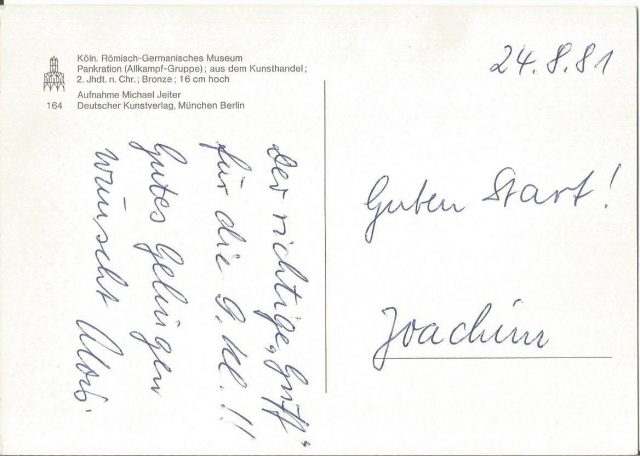 Köln. Römisch-Germanisches Museum
Pankration (Allkampf-Gruppe); aus dem Kunsthandel;
2. Jhdt. n. Chr.; Bronze; 16 cm hoch
Aufnahme Michael Jeiter
164 Deutscher Kunstverlag, München Berlin
24.8.81
Guten Start!
Joachim
Der richtige „Griff“
für die 9. Kl.!!
Gutes Gelingen
wünscht